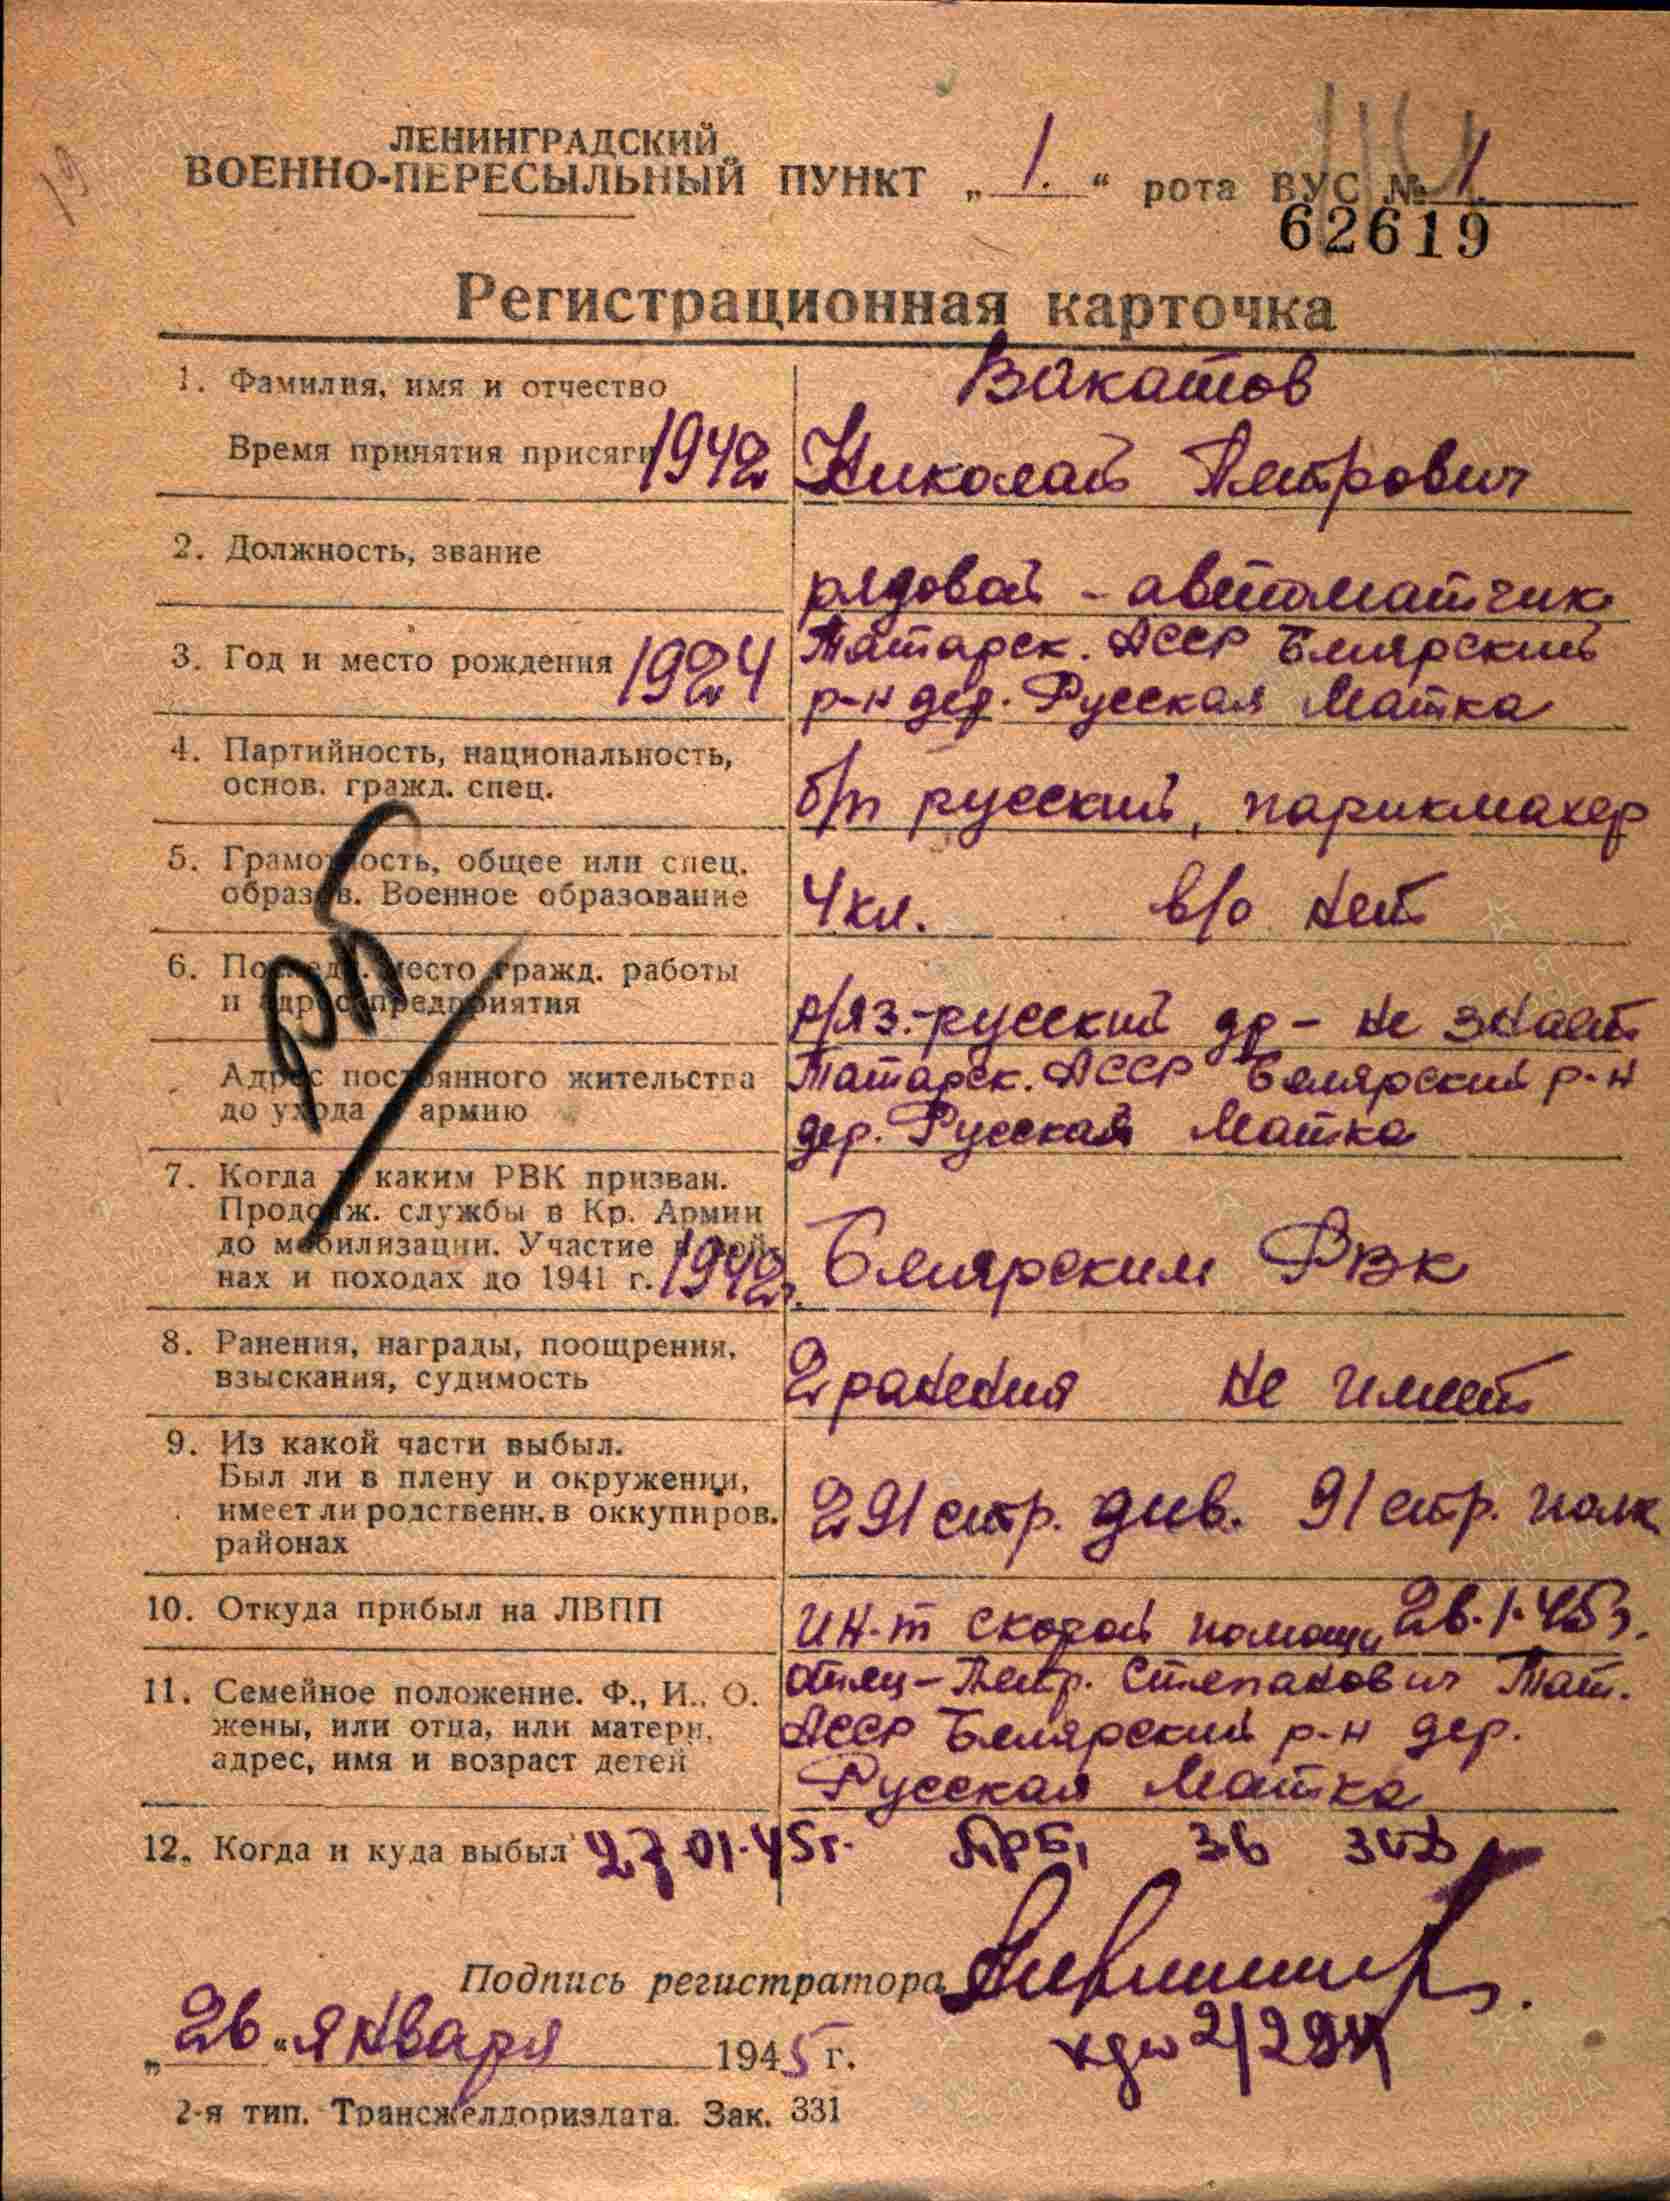 ЛЕНИНГРАДСКИЙ
ВОЕННО-ПЕРЕСЫЛЬНЫЙ ПУНКТ „1.“ рота ВУС № 1
62619
Регистрационная карточка
1. Фамилия, имя и отчество Вакатов
Время принятия присяги 1942 Николай Петрович
2. Должность, звание рядовой - автоматчик
3. Год и место рождения 1924 Татарск. АССР Билярский
р-н дер. Русская Матка
4. Партийность, национальность,
основ. гражд. спец. б/п русский, парикмахер
5. Грамотность, общее или спец.
образов. Военное образование 4 кл. в/о нет
6. Последн. место гражд. работы
и адрес предприятия р/яз.-русский др - не знает
Адрес постоянного жительства Татарск. АССР Билярский р-н
до ухода в армию дер. Русская Матка
7. Когда и каким РВК призван.
Продолж. службы в Кр. Армии
до мобилизации. Участие в вой-
нах и походах до 1941 г. 1942г. Билярским РВК
8. Ранения, награды, поощрения,
взыскания, судимость 2 ранения не имеет
9. Из какой части выбыл.
Был ли в плену и окружении,
имеет ли родственн. в оккупиров.
районах 291 стр. див. 91 стр. полк
10. Откуда прибыл на ЛВПП ин-т скорой помощи 26.1.45г.
11. Семейное положение. Ф., И., О. отец - Петр. Степанович Тат.
жены, или отца, или матери, АССР Билярский р-н дер.
адрес, имя и возраст детей Русская Матка
12. Когда и куда выбыл 27.01.45г. 36
Подпись регистратора
„26“ января 1945 г.
2-я тип. Трансжелдориздата. Зак. 331